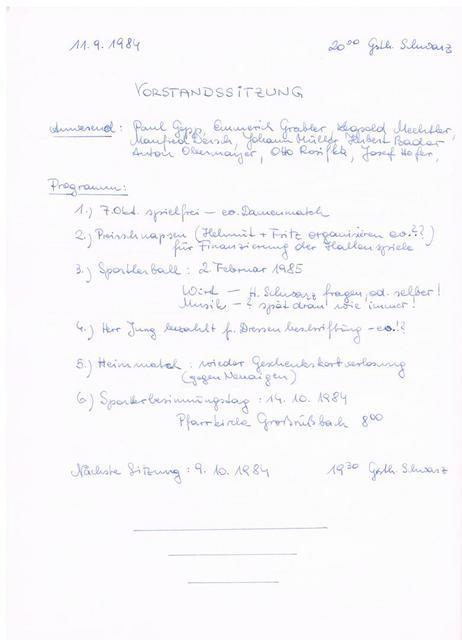 11.9.1984 20⁰⁰ Gsth. Schwarz
VORSTANDSSITZUNG
Anwesend: Paul Gepp, Emmerich Grabler, Leopold Mechtler,
Manfred Dersch, Johann Müller, Herbert Bader
Anton Obermaier, Otto Rosifka, Josef Hofer,
Programm:
1.) 7. Okt. spielfrei – ev. Damenmatch
2.) Preisschnapsen (Helmut + Fritz organisieren ev.??)
für Finanzierung der Hallenspiele
3.) Sportlerball: 2. Februar 1985
Wirt – H. Schwarz fragen, od. selber!
Musik – ? spät dran wie immer!
4.) Herr Jung bezahlt f. Dressen beschriftung – ev.!?
5.) Heimmatch: wieder Geschenkskorbverlosung
(gegen Neuaigen)
6.) Sportlerbesinnungstag: 14.10.1984
Pfarrkirche Großrußbach 8⁰⁰
Nächste Sitzung: 9.10.1984 19³⁰ Gsth. Schwarz